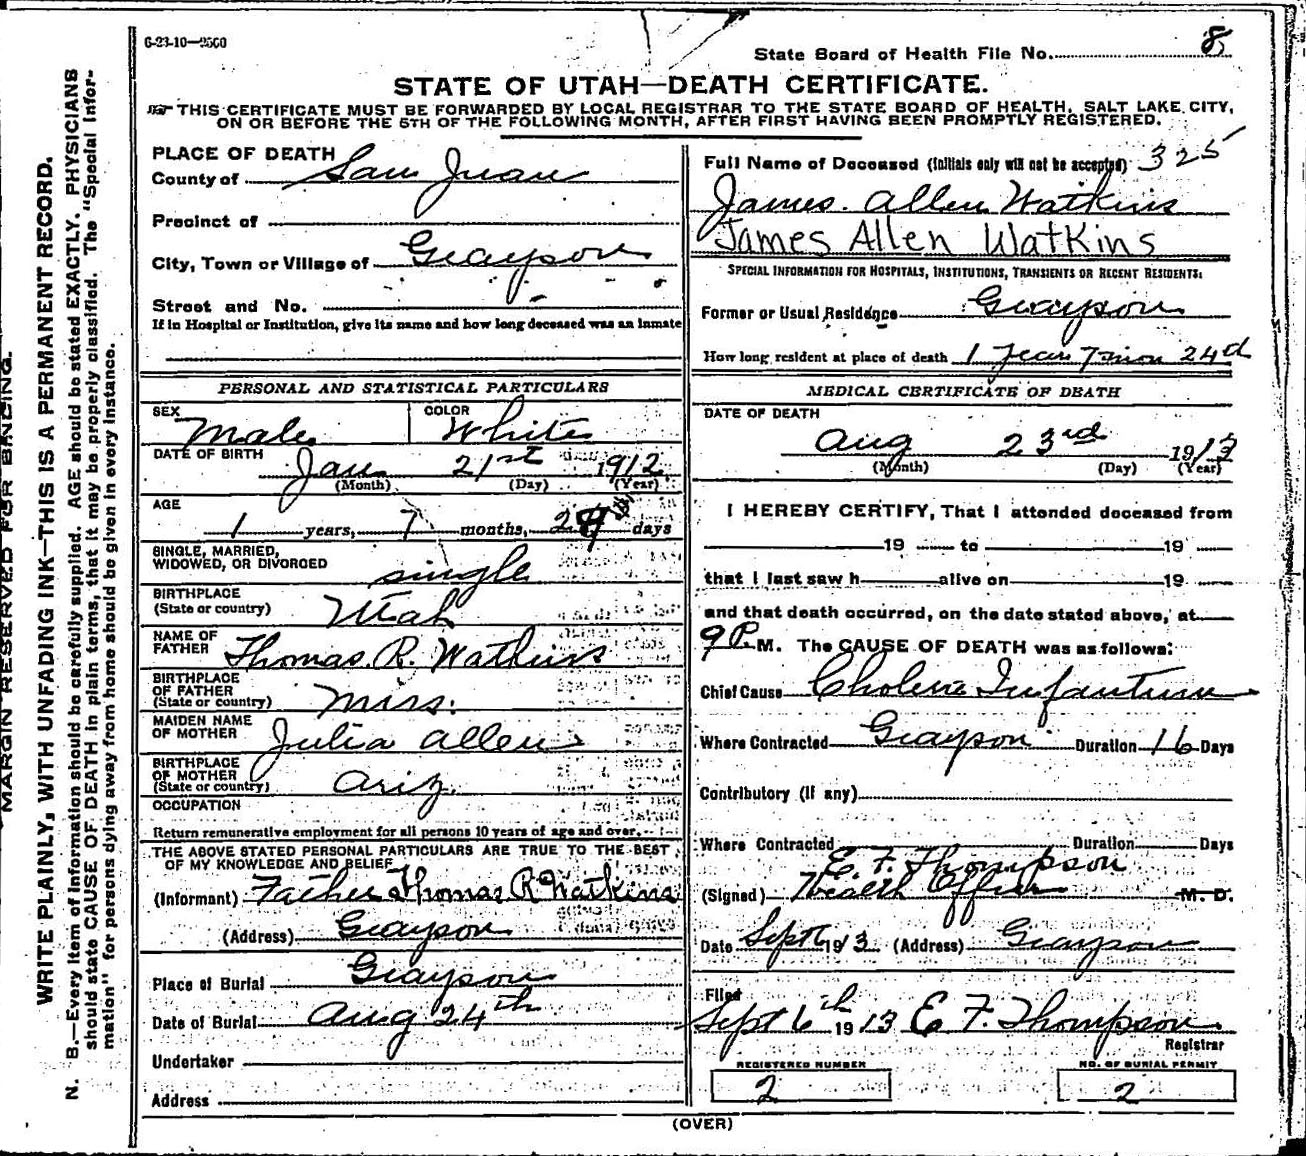 6-23-10—2500
State Board of Health File No. 8
STATE OF UTAH—DEATH CERTIFICATE.
THIS CERTIFICATE MUST BE FORWARDED BY LOCAL REGISTRAR TO THE STATE BOARD OF HEALTH, SALT LAKE CITY,
ON OR BEFORE THE 5TH OF THE FOLLOWING MONTH, AFTER FIRST HAVING BEEN PROMPTLY REGISTERED.
MARGIN RESERVED FOR BINDING.
WRITE PLAINLY, WITH UNFADING INK—THIS IS A PERMANENT RECORD.
N. B.—Every item of information should be carefully supplied. AGE should be stated EXACTLY. PHYSICIANS
should state CAUSE OF DEATH in plain terms, that it may be properly classified. The "Special Infor-
mation" for persons dying away from home should be given in every instance.
PLACE OF DEATH
County of San Juan
Precinct of
City, Town or Village of Grayson
Street and No. -
If in Hospital or Institution, give its name and how long deceased was an inmate
PERSONAL AND STATISTICAL PARTICULARS
SEX Male COLOR White
DATE OF BIRTH Jan 21st 1912
(Month) (Day) (Year)
AGE
1 years, 7 months, days
SINGLE, MARRIED,
WIDOWED, OR DIVORCED single
BIRTHPLACE
(State or country) Utah
NAME OF
FATHER Thomas R. Watkins
BIRTHPLACE
OF FATHER
(State or country) Miss.
MAIDEN NAME
OF MOTHER Julia Allen
BIRTHPLACE
OF MOTHER
(State or country) Ariz.
OCCUPATION
Return remunerative employment for all persons 10 years of age and over.
THE ABOVE STATED PERSONAL PARTICULARS ARE TRUE TO THE BEST
OF MY KNOWLEDGE AND BELIEF
(Informant) Father Thomas R Watkins
(Address) Grayson
Place of Burial Grayson
Date of Burial Aug 24th
Undertaker
Address
Full Name of Deceased (Initials only will not be accepted) 325
James. Allen Watkins
James Allen Watkins
SPECIAL INFORMATION FOR HOSPITALS, INSTITUTIONS, TRANSIENTS OR RECENT RESIDENTS:
Former or Usual Residence Grayson
How long resident at place of death 1 Year 7 mon 24d
MEDICAL CERTIFICATE OF DEATH
DATE OF DEATH
Aug 23rd 1913
(Month) (Day) (Year)
I HEREBY CERTIFY, That I attended deceased from
19 to 19
that I last saw h alive on 19
and that death occurred, on the date stated above, at
9 P. M. The CAUSE OF DEATH was as follows:
Chief Cause Cholera Infantum
Where Contracted Grayson Duration 16 Days
Contributory (if any)
Where Contracted Duration Days
E. F. Thompson
(Signed) Health Officer M. D.
Date Sept 6 1913 (Address) Grayson
Filed
Sept 6th 1913 E F. Thompson
Registrar
REGISTERED NUMBER
2
NO. OF BURIAL PERMIT
2
(OVER)